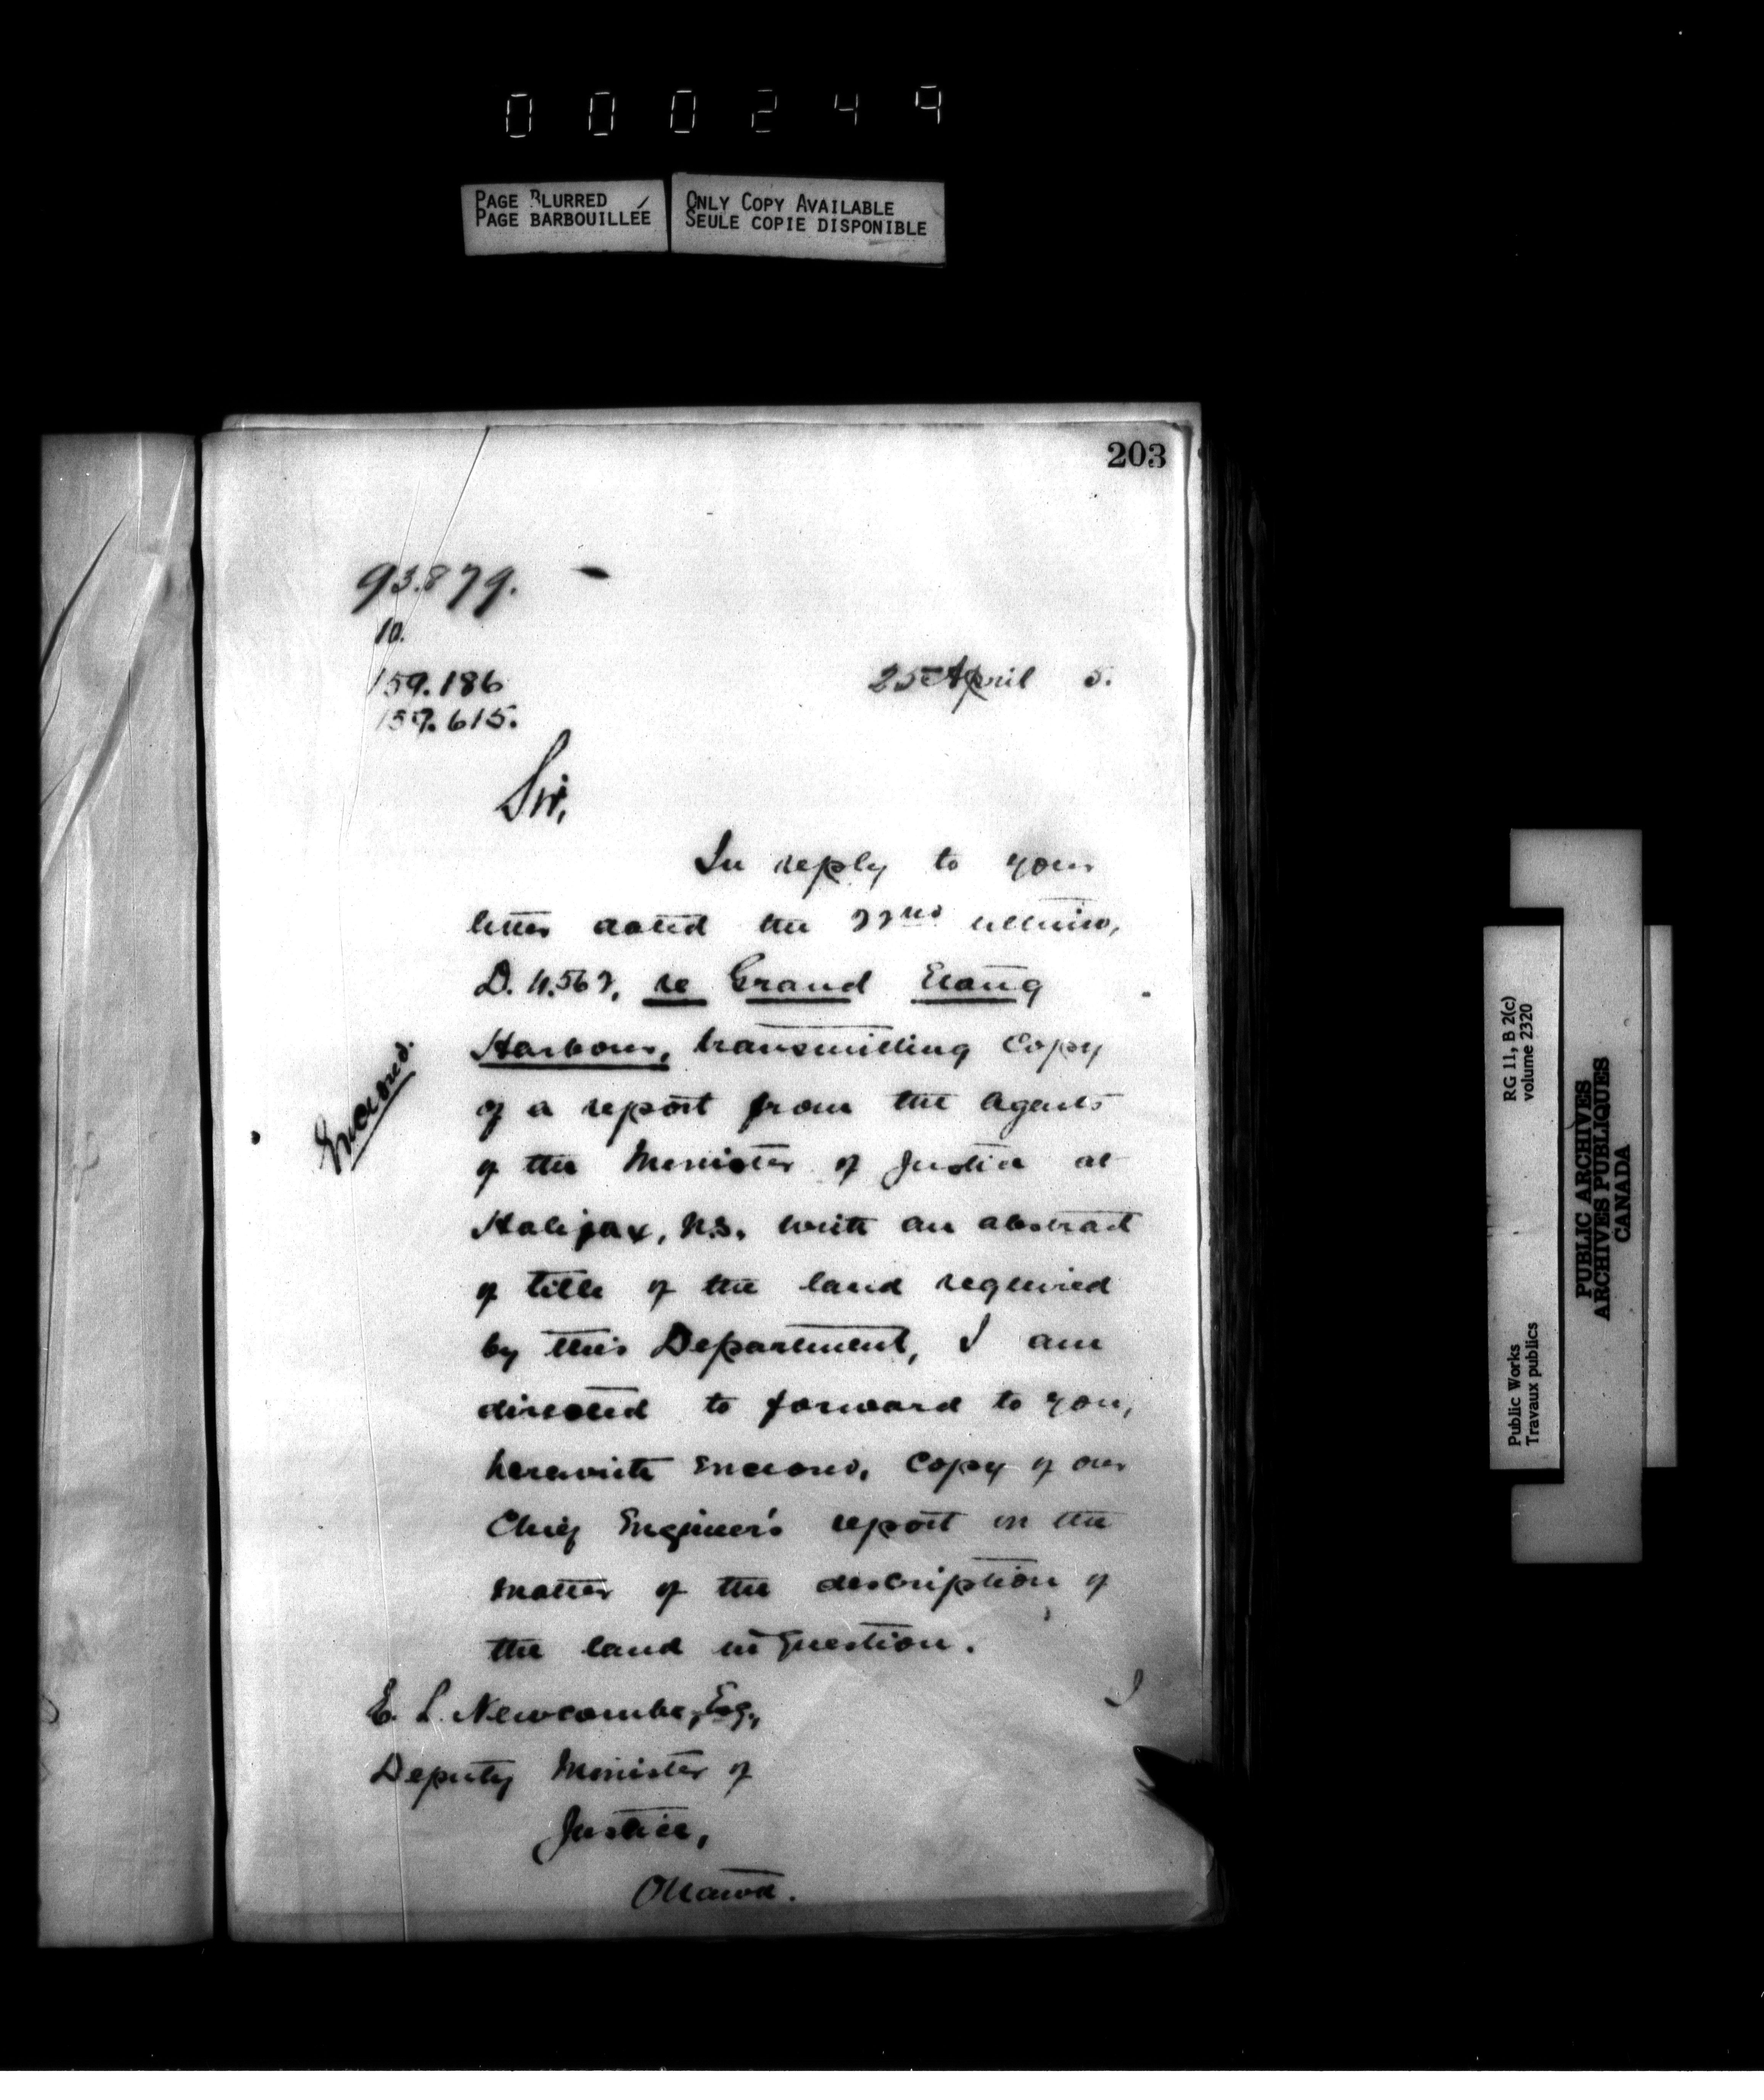 000249
PAGE BLURRED
PAGE BARBOUILLÉE
ONLY COPY AVAILABLE
SEULE COPIE DISPONIBLE
203
93.879.
10.
159.186
25 April 5.
159.615.
Sir,
In reply to your
letter dated the 22nd ultimo,
D. 11.562, re Grand Etang
Harbour, transmitting copy
of a report from the Agents
of the Minister of Justice at
Halifax, N.S. with an abstract
of title of the land required
by this Department, I am
directed to forward to you,
herewith enclosed, copy of our
Chief Engineer's report in the
matter of the description of
the land in question.
Enclosed.
I
E. L. Newcombe, Esq.,
Deputy Minister of
Justice,
Ottawa.
RG 11, B 2(c)
volume 2320
Public Works
Travaux publics
PUBLIC ARCHIVES
ARCHIVES PUBLIQUES
CANADA